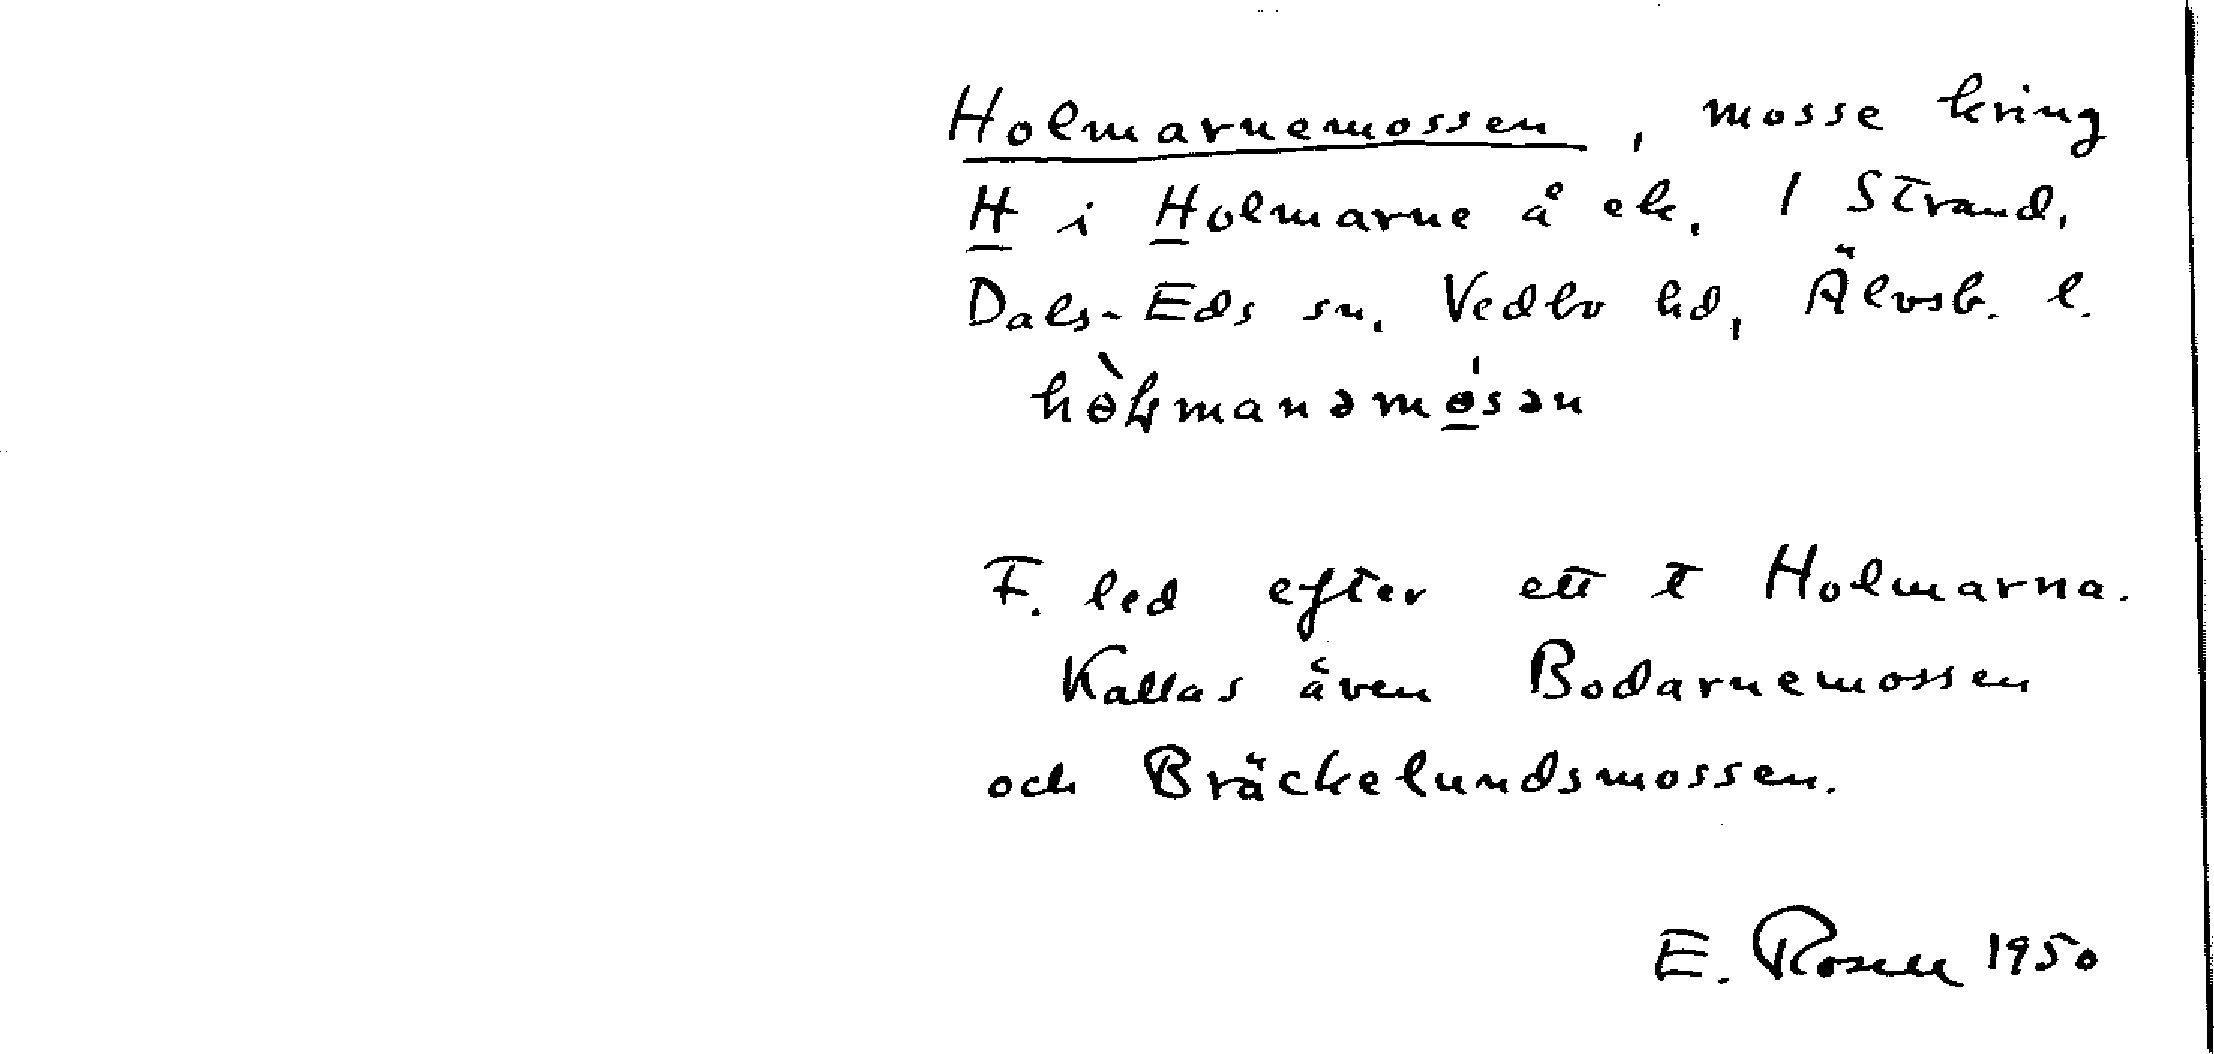 Holmarnemossen, mosse kring
H i Holmarne å ek. 1 Strand,
Dals-Eds sn, Vedbo hd, Älvsb. l.
F. led efter ett t Holmarna.
Kallas även Bodarnemossen
och Bräckelundsmossen.
E. Rosell 1950